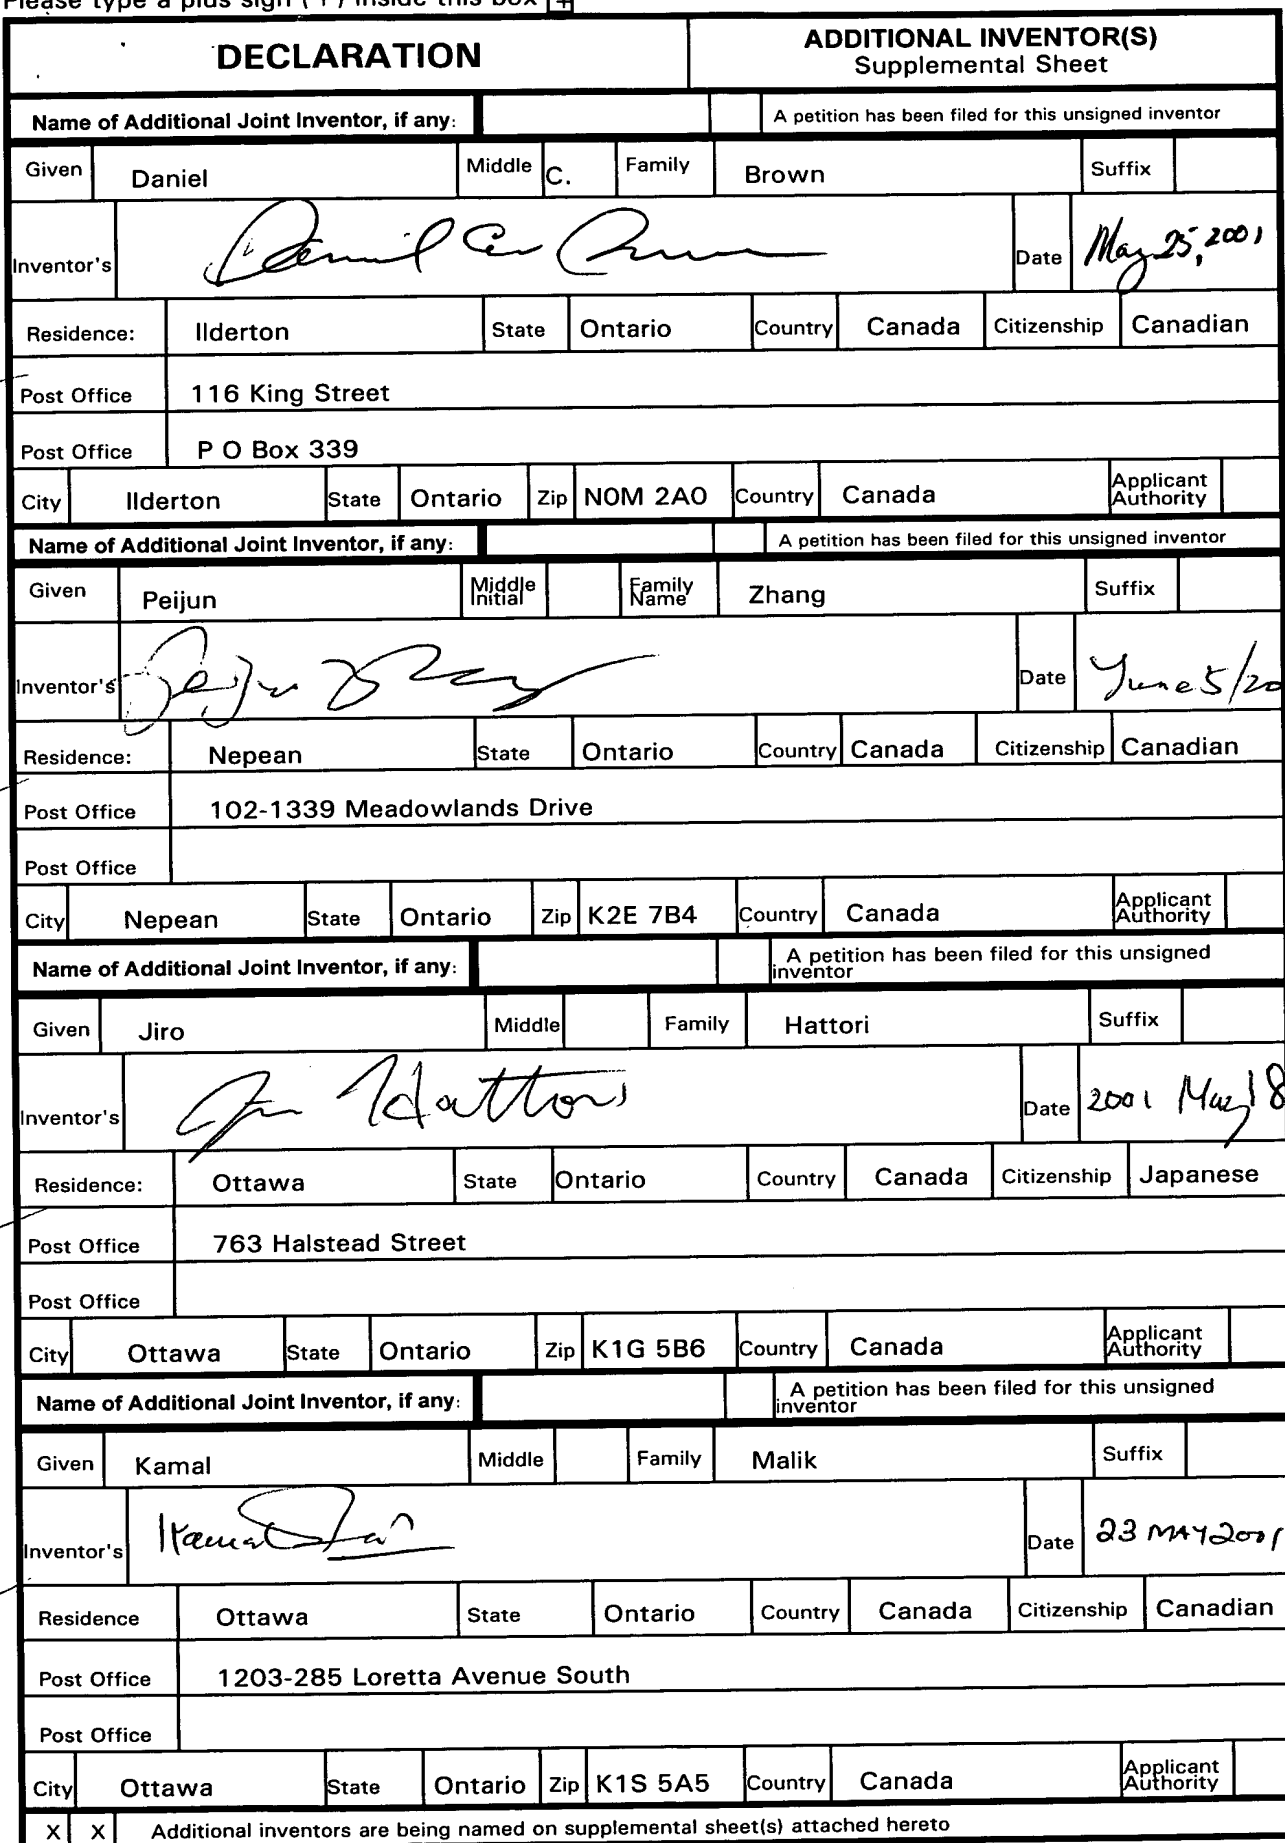 Please type a plus sign (+) inside this box +
DECLARATION ADDITIONAL INVENTOR(S)
Supplemental Sheet
Name of Additional Joint Inventor, if any: A petition has been filed for this unsigned inventor
Given Daniel Middle C. Family Brown Suffix
Inventor's Date May 25, 2001
Residence: Ilderton State Ontario Country Canada Citizenship Canadian
Post Office 116 King Street
Post Office P O Box 339
City Ilderton State Ontario Zip N0M 2A0 Country Canada Applicant Authority
Name of Additional Joint Inventor, if any: A petition has been filed for this unsigned inventor
Given Peijun Middle Initial Family Name Zhang Suffix
Inventor's Date June 5/20
Residence: Nepean State Ontario Country Canada Citizenship Canadian
Post Office 102-1339 Meadowlands Drive
Post Office
City Nepean State Ontario Zip K2E 7B4 Country Canada Applicant Authority
Name of Additional Joint Inventor, if any: A petition has been filed for this unsigned inventor
Given Jiro Middle Family Hattori Suffix
Inventor's Jiro Hattori Date 2001 May 18
Residence: Ottawa State Ontario Country Canada Citizenship Japanese
Post Office 763 Halstead Street
Post Office
City Ottawa State Ontario Zip K1G 5B6 Country Canada Applicant Authority
Name of Additional Joint Inventor, if any: A petition has been filed for this unsigned inventor
Given Kamal Middle Family Malik Suffix
Inventor's Date 23 MAY 2001
Residence Ottawa State Ontario Country Canada Citizenship Canadian
Post Office 1203-285 Loretta Avenue South
Post Office
City Ottawa State Ontario Zip K1S 5A5 Country Canada Applicant Authority
X X Additional inventors are being named on supplemental sheet(s) attached hereto